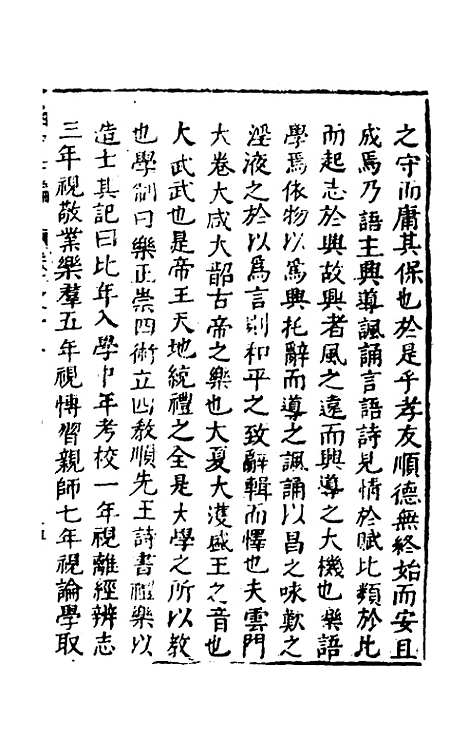 之守而庸其保也於是乎孝友順德無終始而安且
成焉乃語主興導諷誦言語詩見情於賦比類於比
而起志於興故興者風之遠而興導之大機也樂語
學焉依物以爲興托辭而導之諷誦以昌之咏歎之
淫液之於以爲言則和平之致辭輯而懌也夫雲門
大卷大咸大韶古帝之樂也大夏大濩盛王之音也
大武武也是帝王天地統禮之全是大學之所以教
也學制曰樂正崇四術立四教順先王詩書禮樂以
造士其記曰比年入學中年考校一年視離經辨志
三年視敬業樂羣五年視博習親師七年視論學取